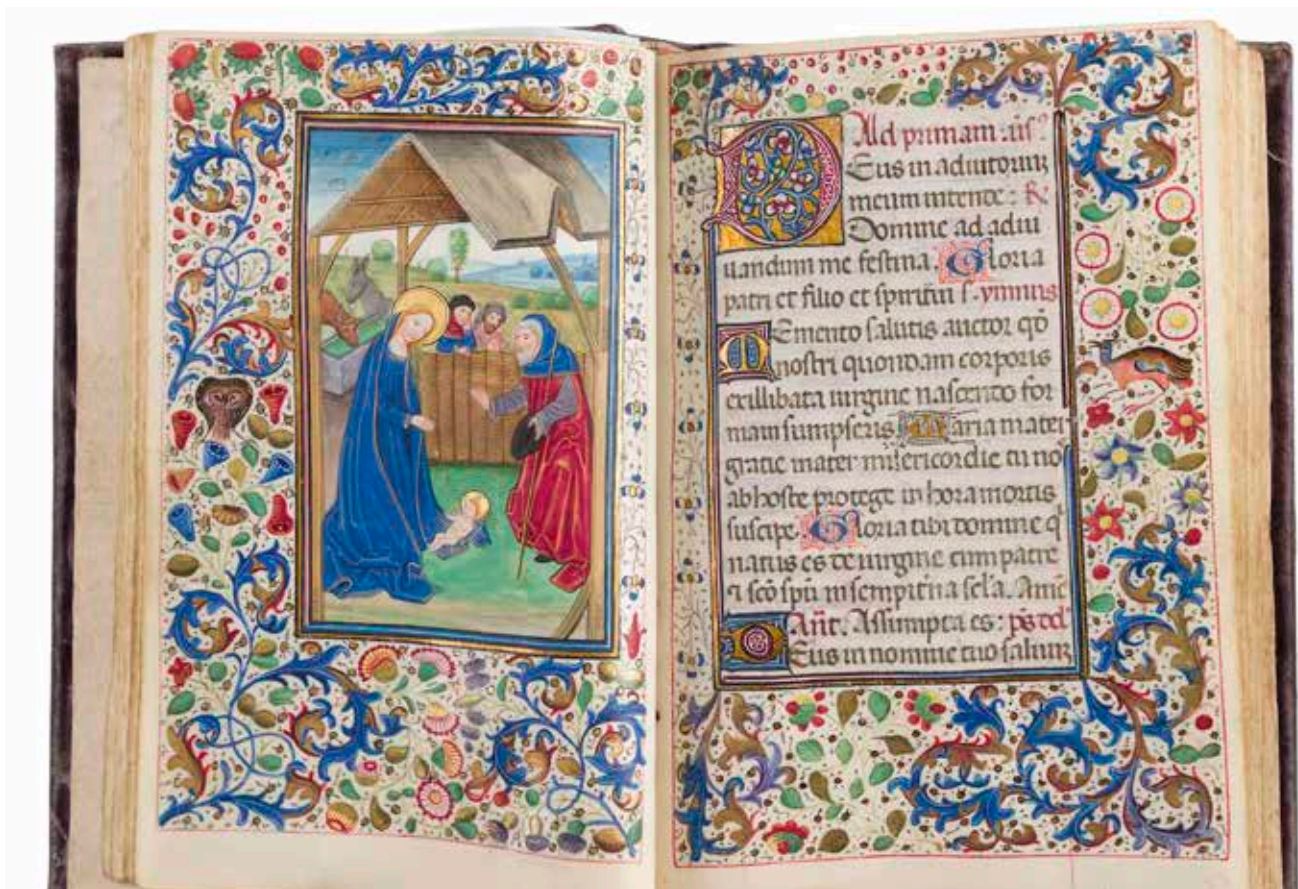 Ad primam. us̄
Deus in adiutoriū
meum intende: R̄
Domine ad adiu
uandum me festina. Gloria
patri et filio et spiritui s. ymnus
Memento salutis auctor qd̄
nostri quondam corporis
exillibata uirgine nascendo for
mam sumpseris Maria mater
gratie mater misericordie tu nos
ab hoste protege in hora mortis
suscipe. Gloria tibi domine q̄
natus es de uirgine cum patre
et sc̄o spū in sempit̄na sc̄la. Amē
Añt. Assumpta es: ps̄
Deus in nomine tuo saluū